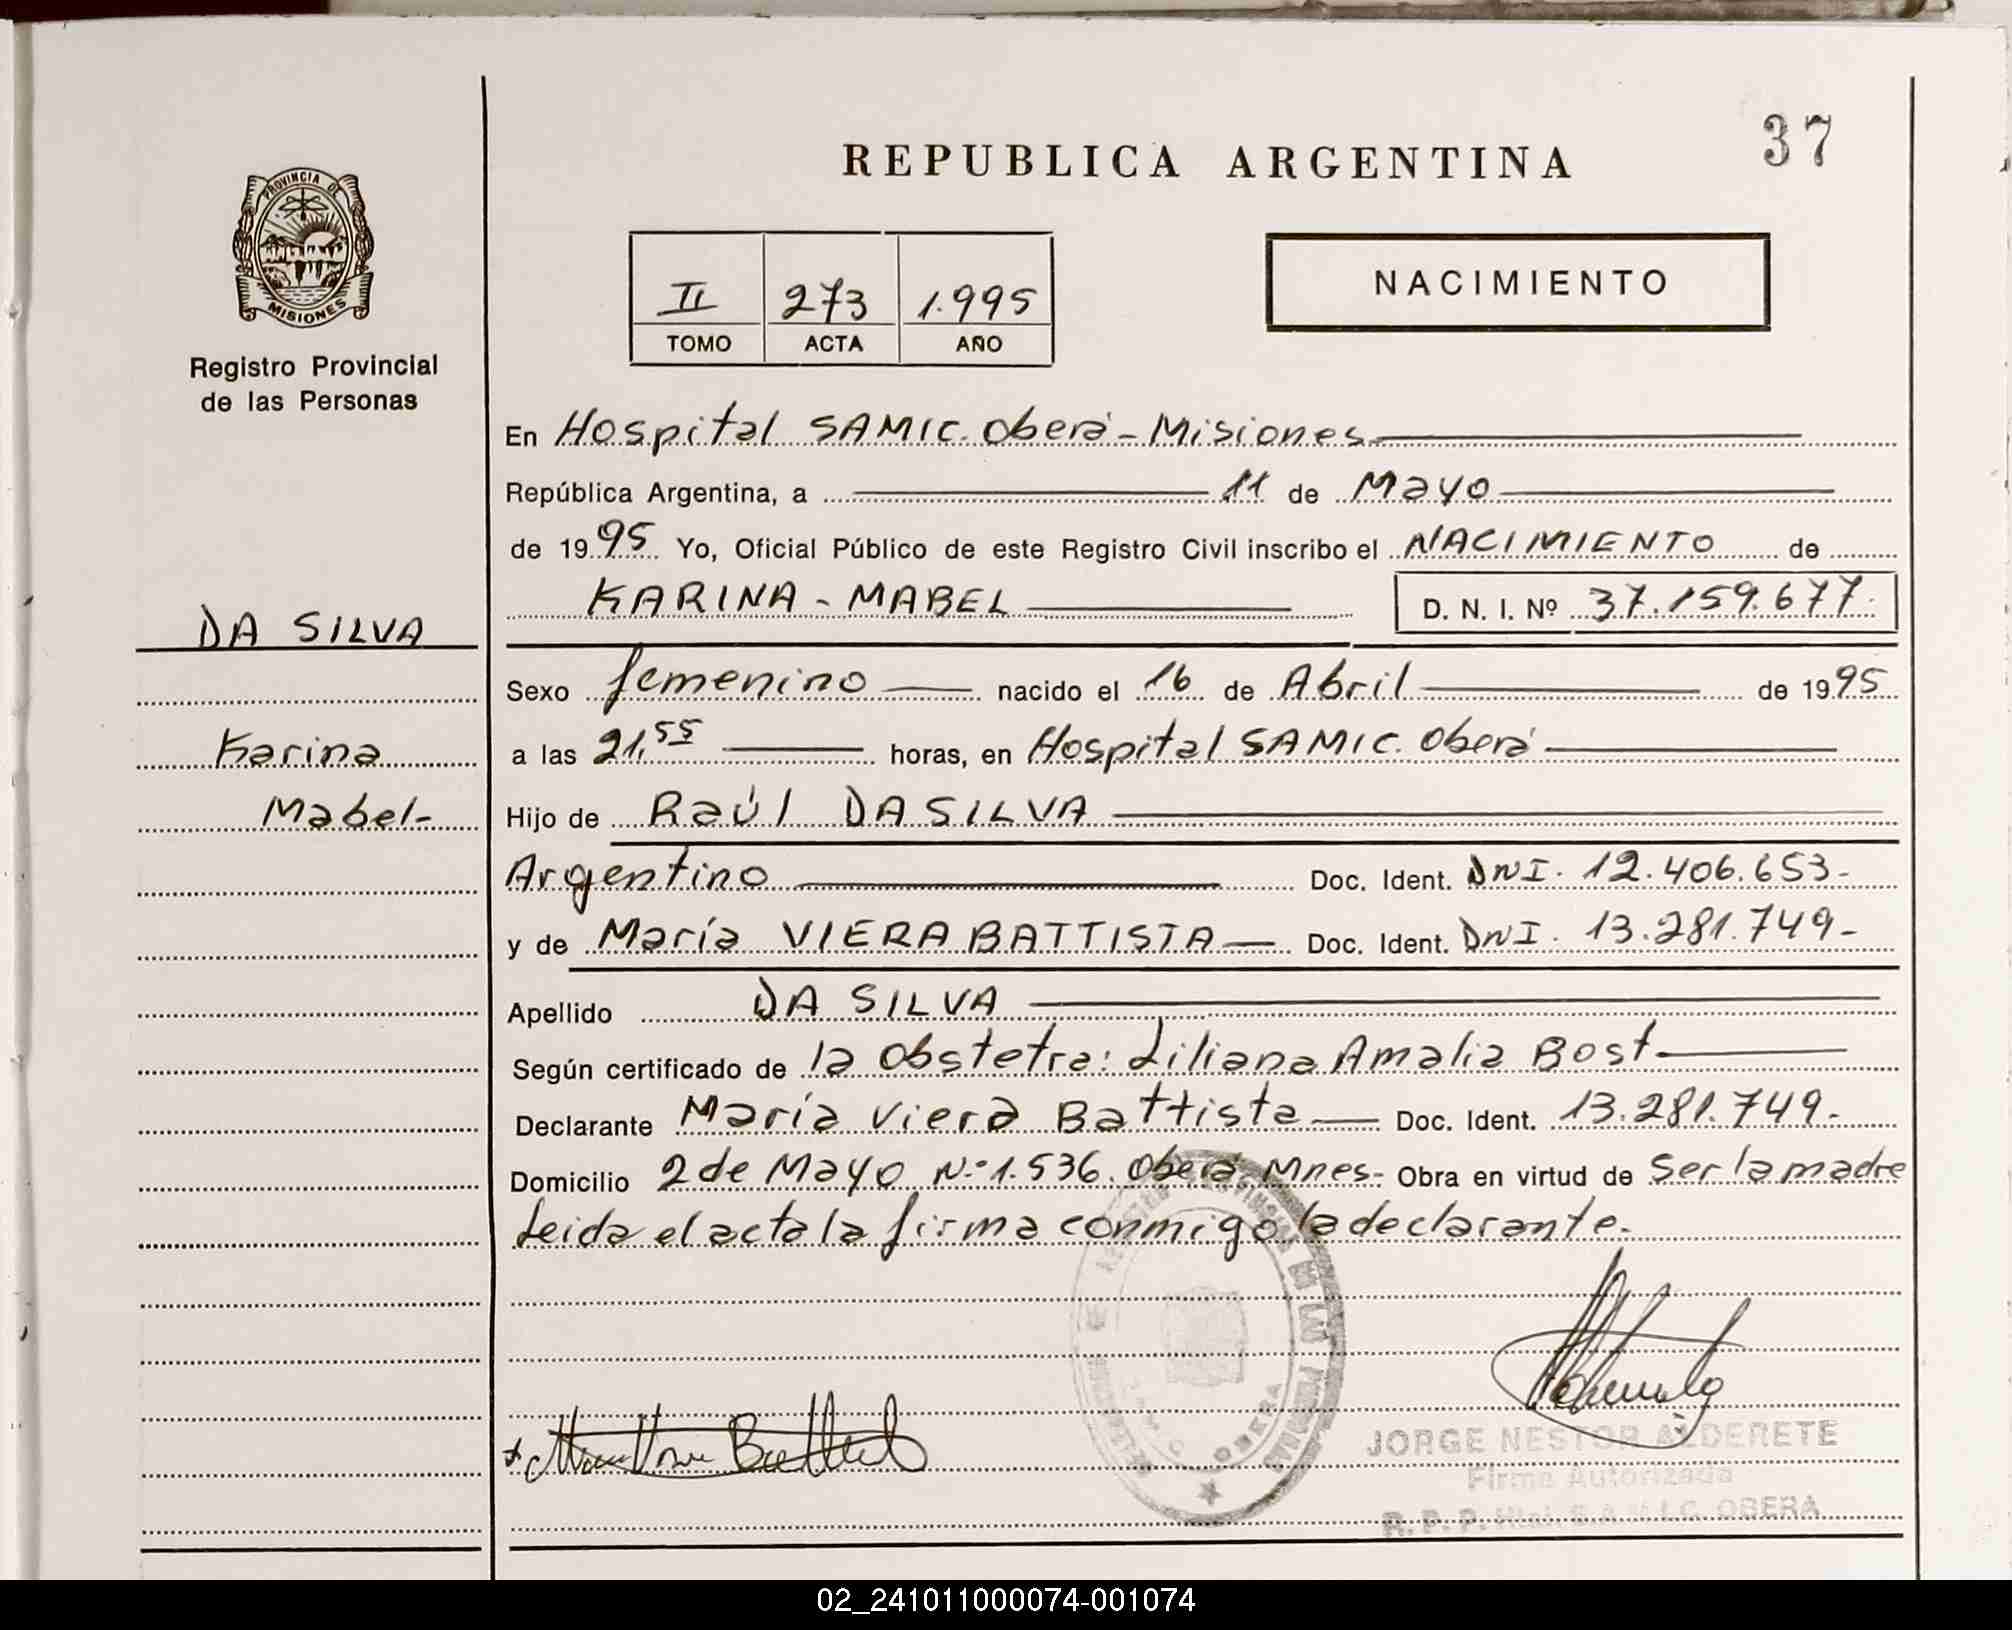 37
REPUBLICA ARGENTINA
PROVINCIA DE
MISIONES
Registro Provincial
de las Personas
II 273 1.995
TOMO ACTA AÑO
NACIMIENTO
En Hospital SAMIC. Oberá - Misiones
República Argentina, a 11 de Mayo
de 1995 Yo, Oficial Público de este Registro Civil inscribo el NACIMIENTO de
KARINA - MABEL D. N. I. Nº 37.159.677.
DA SILVA
Karina
Mabel-
Sexo femenino nacido el 16 de Abril de 1995
a las 21,55 horas, en Hospital SAMIC. Oberá
Hijo de Raúl DA SILVA
Argentino Doc. Ident. DNI. 12.406.653-
y de María VIERA BATTISTA Doc. Ident. DNI. 13.281.749-
Apellido DA SILVA
Según certificado de la Obstetra: Liliana Amalia Bost.
Declarante María Viera Battista Doc. Ident. 13.281.749-
Domicilio 2 de Mayo N.º 1.536. Oberá Mnes- Obra en virtud de Ser la madre
Leida el acta la firma conmigo la declarante.
OBERA
JORGE NESTOR ALDERETE
Firma Autorizada
R. P. P. Htal. S.A.M.I.C. OBERA
02_241011000074-001074